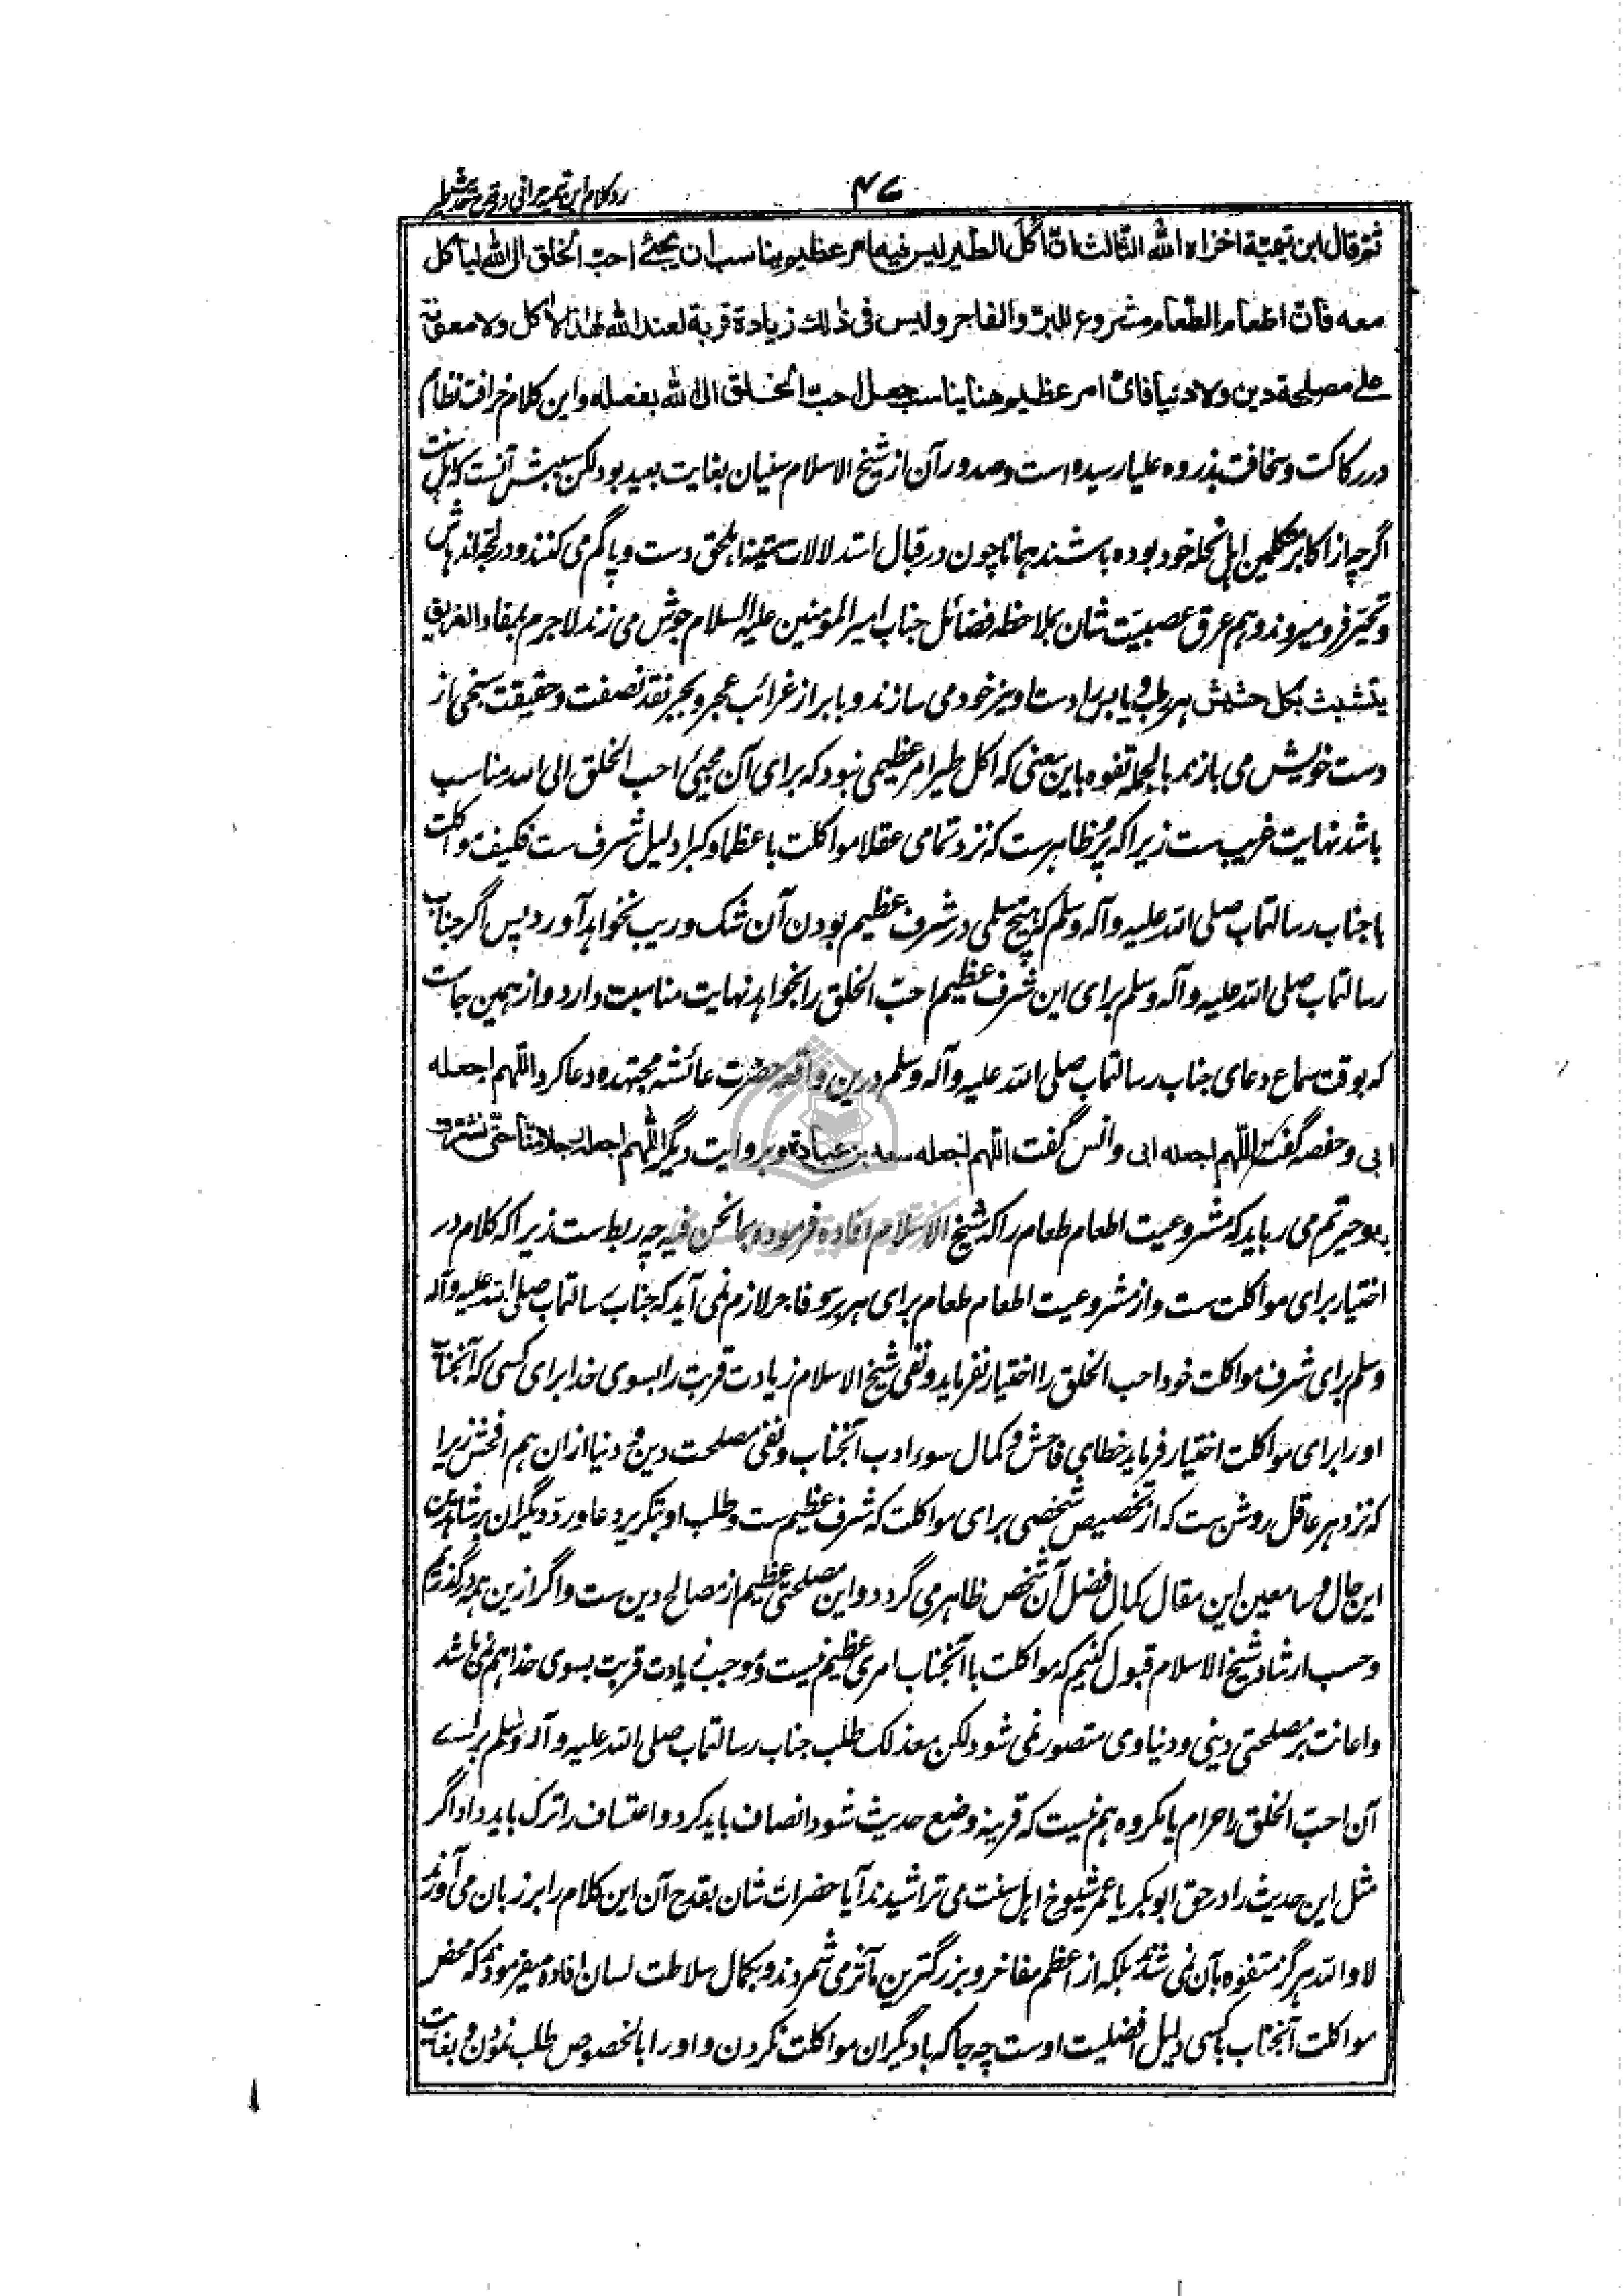 ۴۶
رد کلام ابن تیمیه حرانی در قدح حدیث طیر
ثم قال ابن تیمیة اخزاه الله الثالث ان اکل الطیر لیس فیه امر عظیم یناسب ان یجئ احب الخلق الی الله لیاکل
معه فان اطعام الطعام مشروع للبر والفاجر ولیس فی ذلك زیادة قربة لعند الله لهذا الاکل ولا معونة
علی مصلحة دین ولا دنیا فای امر عظیم هنا یناسب جعل احب الخلق الی الله بفعله واین کلام خرافت نظام
در رکاکت و سخافت بذروه علیا رسیده است و صدور آن از شیخ الاسلام سنیان بغایت بعید بود لکن سببش آنست که اهل سنت
اگرچه از اکابر متکلمین اهل نحله خود بوده باشند همانا چون در قبال استدلالات متینه اهل حق دست و پا گم می کنند و در لجه اندهاش
و تحیر فرو میروند و هم عرق عصبیت شان بملاحظه فضائل جناب امیر المومنین علیه السلام جوش می زند لاجرم بمفاد الغریق
یتشبث بکل حشیش هر رطب و یابس را دستاویز خود می سازند و بابراز غرائب عجر و بجر نقد نصفت و حقیقت سنجی از
دست خویش می بازند بالجمله تفوه باین معنی که اکل طیر امر عظیمی نبود که برای آن مجیئ احب الخلق الی الله مناسب
باشد نهایت غریب ست زیرا که پر ظاهرست که نزد تمامی عقلا مواکلت با عظما و کبرا دلیل شرف ست فکیف مواکلت
با جناب رسالتماب صلی الله علیه و آله وسلم که هیچ مسلمی در شرف عظیم بودن آن شک و ریب نخواهد آورد پس اگر جناب
رسالتماب صلی الله علیه و آله وسلم برای این شرف عظیم احب الخلق را بخواهد نهایت مناسبت دارد و از همین جاست
که بوقت سماع دعای جناب رسالتماب صلی الله علیه و آله وسلم درین واقعه حضرت عائشه مجتهده دعا کرد اللهم اجعله
ابی و حفصه گفت اللهم اجعله ابی و انس گفت اللهم اجعله سعد بن عبادة و بروایت دیگر اللهم اجعله رجلا منا حتی نشرف
به و حیرتم می رباید که مشروعیت اطعام طعام را که شیخ الاسلام افاده فرموده بما نحن فیه چه ربط ست زیرا که کلام در
اختیار برای مواکلت ست و از مشروعیت اطعام طعام برای هر بر و فاجر لازم نمی آید که جناب رسالتماب صلی الله علیه و آله
وسلم برای شرف مواکلت خود احب الخلق را اختیار نفرماید و نفی شیخ الاسلام زیادت قربت را بسوی خدا برای کسی که آنجناب
او را برای مواکلت اختیار فرماید خطای فاحش و کمال سوء ادب آنجناب و نفی مصلحت دین و دنیا ازان هم افحش زیرا
که نزد هر عاقل روشن ست که از تخصیص شخصی برای مواکلت که شرف عظیم ست و طلب او بتکریر دعا و رد دیگران بر شاهدین
این حال و سامعین این مقال کمال فضل آن شخص ظاهر می گردد و این مصلحتی عظیم از مصالح دین ست و اگر ازین همه درگذریم
و حسب ارشاد شیخ الاسلام قبول کنیم که مواکلت با آنجناب امری عظیم نیست و موجب زیادت قربت بسوی خدا هم نمی باشد
و اعانت بر مصلحتی دینی و دنیاوی متصور نمی شود لکن معذلک طلب جناب رسالتماب صلی الله علیه و آله وسلم برای
آن احب الخلق را حرام یا مکروه هم نیست که قرینه وضع حدیث شود انصاف باید کرد و اعتساف را ترک باید داد اگر
مثل این حدیث را در حق ابوبکر یا عمر شیوخ اهل سنت می تراشیدند آیا حضرات شان بقدح آن این کلام را بر زبان می آوردند
لا والله هرگز متفوه بآن نمی شدند بلکه از اعظم مفاخر و بزرگترین مآثر می شمردند و بکمال سلاطت لسان افاده میفرمودند که محض
مواکلت آنجناب با کسی دلیل افضلیت اوست چه جا که با دیگران مواکلت نکردن و او را بالخصوص طلب نمودن و بغایت